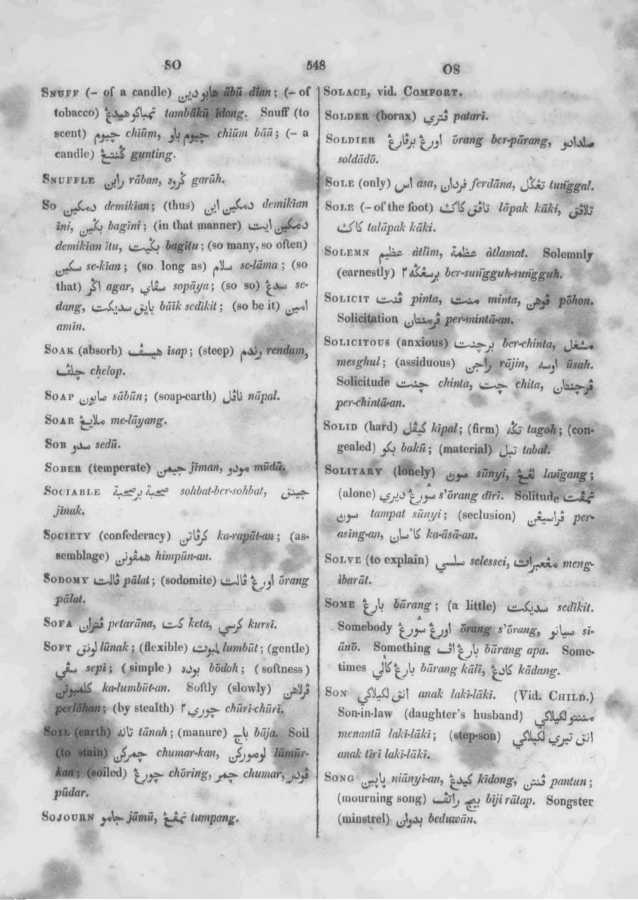 SO
548
OS
SNUFF (– of a candle) هابو دين ābū dīan; (– of
tobacco) تمباكو هيدڠ tambākū īdong. Snuff (to
scent) چيوم chiūm, چيوم باو chiūm bāū; (– a
candle) ڬنتڠ gunting.
SNUFFLE رابن rāban, ڬروه garūh.
SO دمكين demikīan; (thus) دمكين اين demikīan
īni, بڬين bagini; (in that manner) دمكين ايت
demikīan ītu, بڬيت bagitu; (so many, so often)
سكين se-kīan; (so long as) سلام se-lāma; (so
that) اڬر agar, سڤاي sopāya; (so so) سدڠ se-
dang, بايق سديكت bāik sedīkit; (so be it) امين
amīn.
SOAK (absorb) هيسڤ īsap; (steep) رندم rendam,
چلڤ chelop.
SOAP صابون sābūn; (soap-earth) ناڤل nāpal.
SOAR ملايڠ me-lāyang.
SOB سدو sedū.
SOBER (temperate) جيمن jīman, مودو mūdū.
SOCIABLE صحبة برصحبة sohbat-ber-sohbat, جينق
jīnak.
SOCIETY (confederacy) كرڤاتن ka-rapāt-an; (as-
semblage) همڤونن himpūn-an.
SODOMY ڤالت pālat; (sodomite) اورڠ ڤالت ōrang
pālat.
SOFA ڤتران petarāna, كت keta, كرسي kursī.
SOFT لونق lūnak; (flexible) لمبوت lumbūt; (gentle)
سڤي sepi; (simple) بوده bōdoh; (softness)
كلمبوتن ka-lumbūt-an. Softly (slowly) ڤرلاهن
perlāhan; (by stealth) چوري٢ chūri-chūri.
SOIL (earth) تانه tānah; (manure) باج bāja. Soil
(to stain) چمركن chumar-kan, لومورکن lūmūr-
kan; (soiled) چورڠ chōring, چمر chumar, ڤودر
pūdar.
SOJOURN جامو jāmū, تمڤڠ tumpang.
SOLACE, vid. COMFORT.
SOLDER (borax) ڤتري patari.
SOLDIER اورڠ برڤارڠ ōrang ber-pārang, سلدادو
soldādō.
SOLE (only) اس asa, فردان ferdāna, تڠڬل tunggal.
SOLE (– of the foot) لاڤق كاكي lāpak kāki, تلاڤق
كاكي talāpak kāki.
SOLEMN عظيم àtlīm, عظمة àtlamat. Solemnly
(earnestly) برسڠڬه٢ ber-sungguh-sungguh.
SOLICIT ڤنت pinta, منت minta, ڤوهن pōhon.
Solicitation ڤرمنتان per-mintā-an.
SOLICITOUS (anxious) برچنت ber-chinta, مشغل
mesghul; (assiduous) راجن rājin, اوسه ūsah.
Solicitude چنت chinta, چت chita, ڤرچنتان
per-chintā-an.
SOLID (hard) كيڤل kīpal; (firm) تڬه tagoh; (con-
gealed) بكو bakū; (material) تبل tabal.
SOLITARY (lonely) سوني sūnyi, لڠڠ langang;
(alone) سورڠ ديري s'ōrang dīri. Solitude تمڤت
سوني tampat sūnyi; (seclusion) ڤراسيڠن per-
asing-an, كاسان ka-āsā-an.
SOLVE (to explain) سلسي selessei, مڠعبرات meng-
ibarāt.
SOME بارڠ bārang; (a little) سديكت sedīkit.
Somebody اورڠ سورڠ ōrang s'ōrang, سيانو si-
ānō. Something بارڠ اڤ bārang apa. Some-
times بارڠ كالي bārang kāli, كادڠ kādang.
SON انق لكيلاكي anak laki-lāki. (Vid. CHILD.)
Son-in-law (daughter's husband) مننتو لكيلاكي
menantū laki-lāki; (step-son) انق تيري لكيلاكي
anak tīri laki-lāki.
SONG پاپين niānyi-an, كيدڠ kīdong, ڤنتن pantun;
(mourning song) بيجي راتڤ biji rātap. Songster
(minstrel) بدوان beduwān.